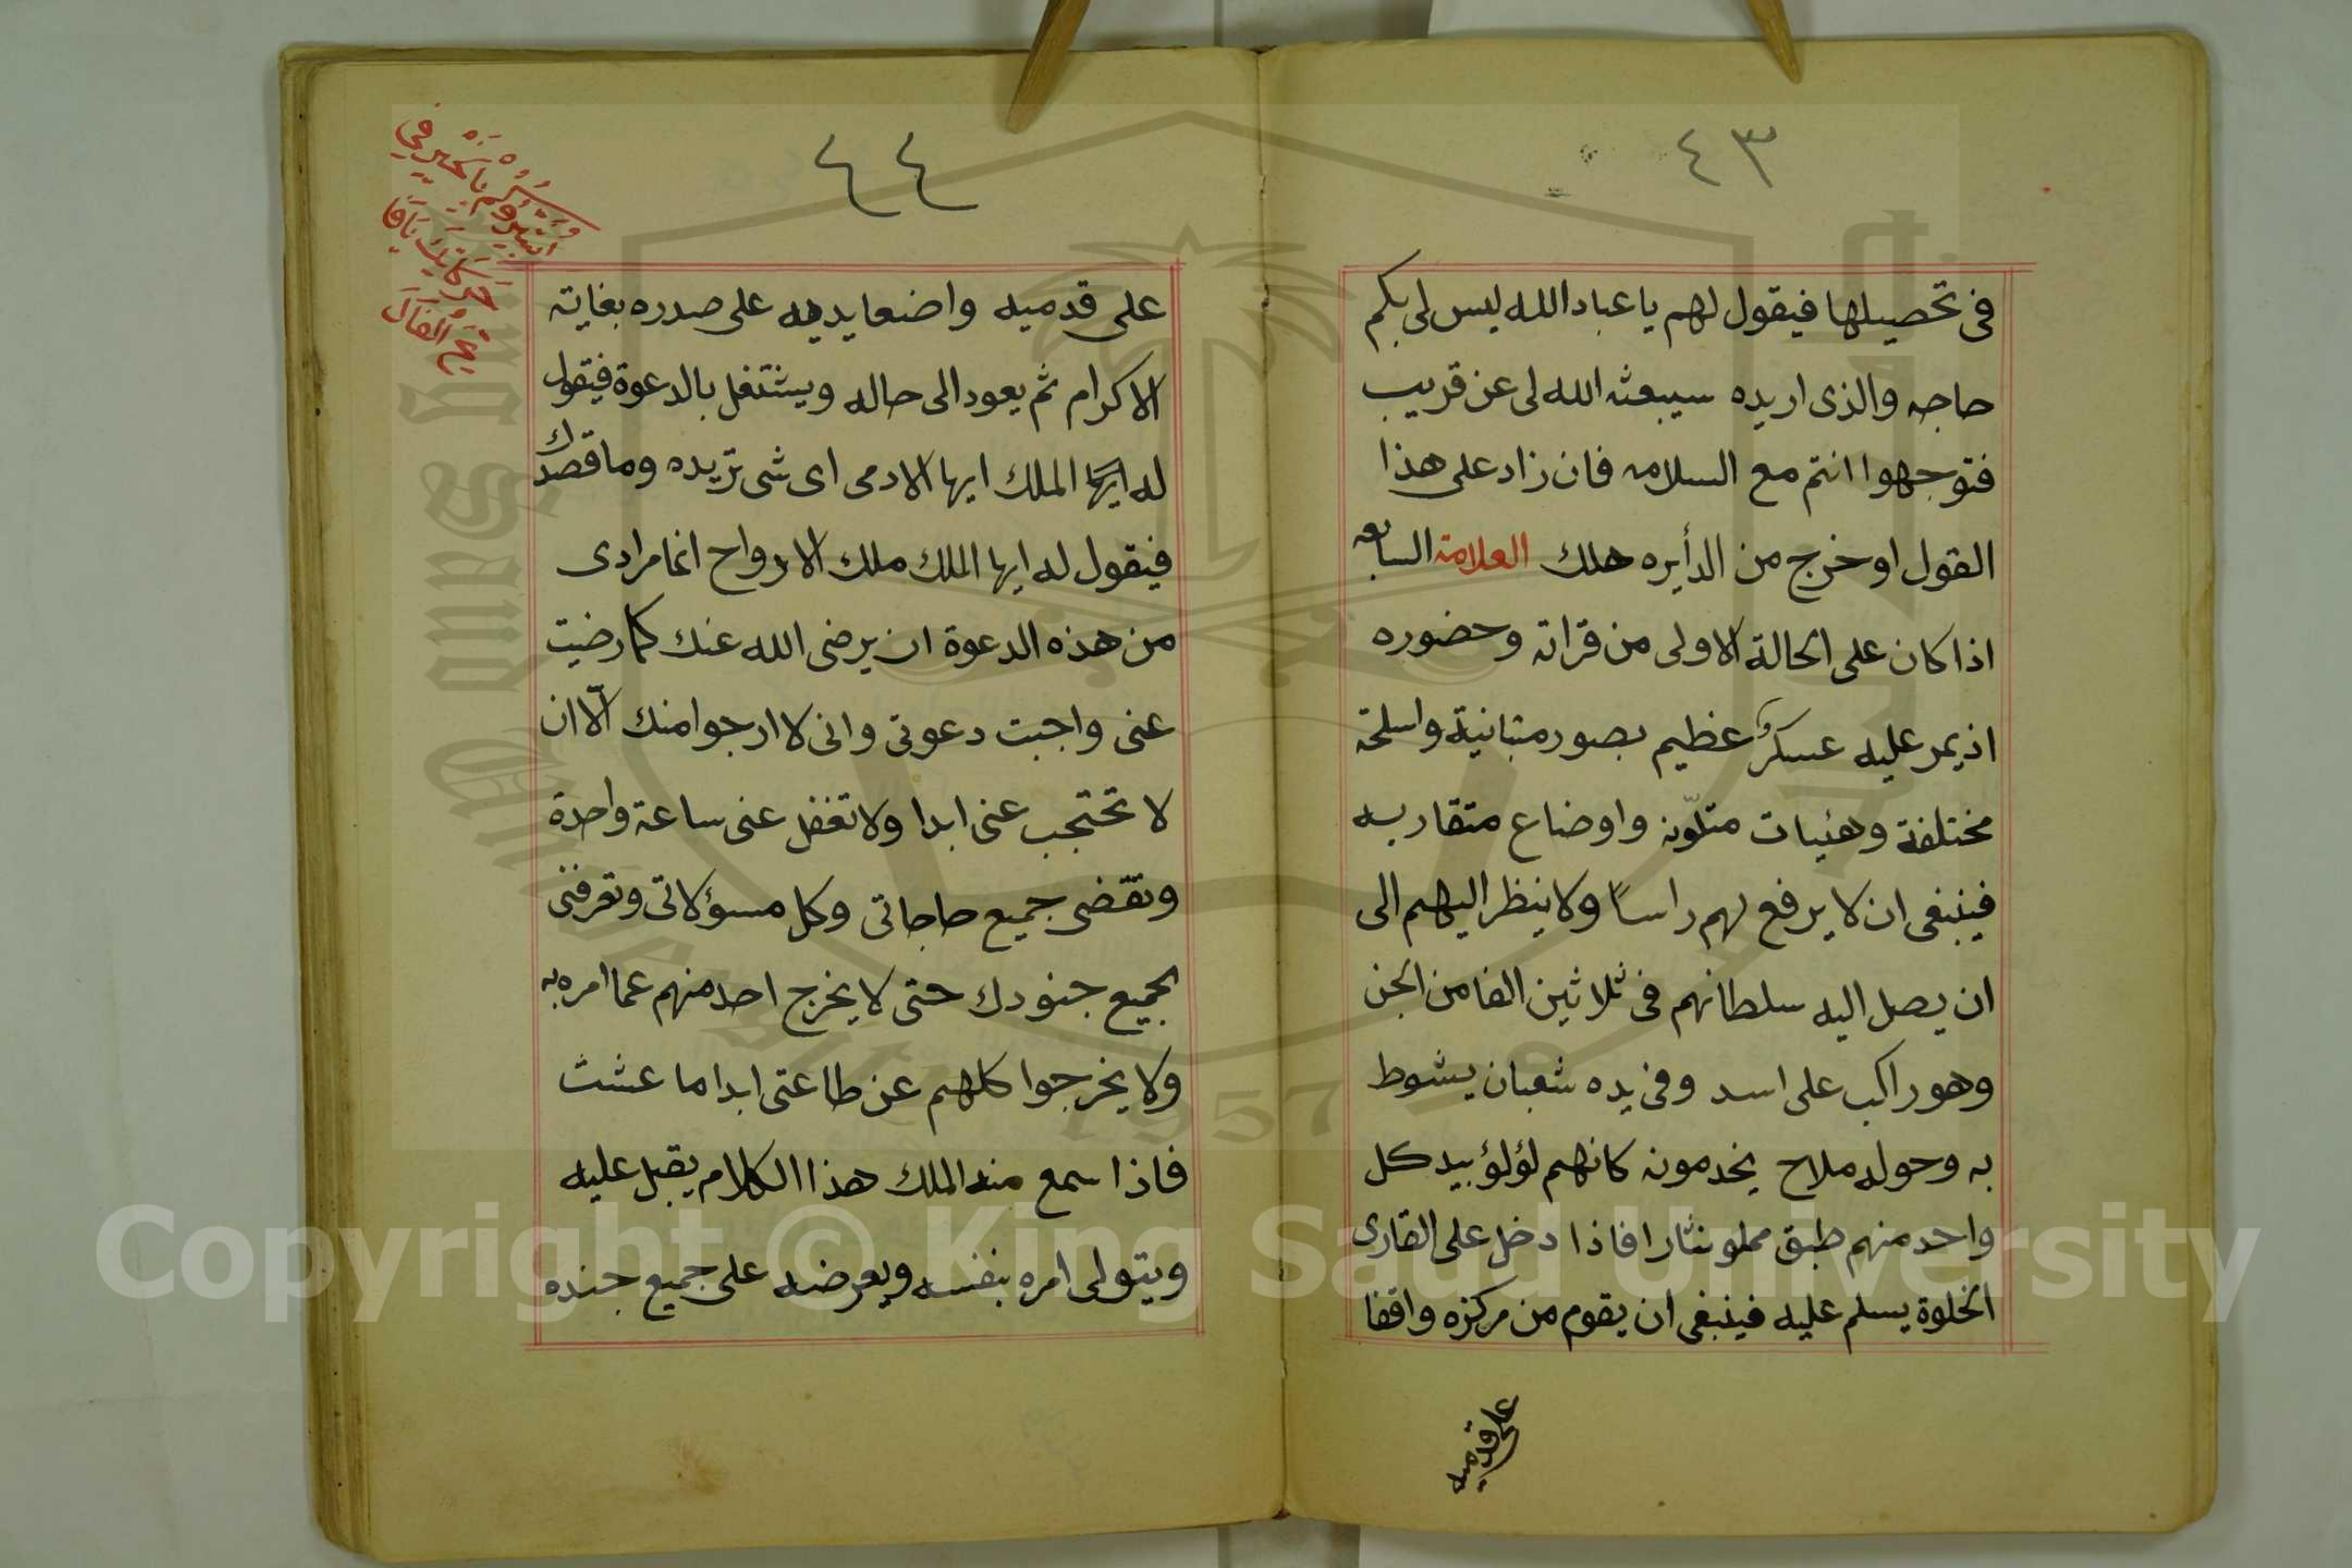 ٤٣
فى تحصيلها فيقول لهم يا عباد الله ليس لى بكم
حاجه والذى اريده سيبعثه الله لى عن قريب
فتوجهوا انتم مع السلامه فان زاد على هذا
القول او خرج من الدأيره هلك العلامة السابعه
اذا كان على الحالة الاولى من قراته وحضوره
اذ يمر عليه عسكرٌ عظيم بصور متبانية واسلحة
مختلفة وهئيات متلوّنه واوضاع متقاربه
فينبغى ان لا يرفع لهم راساً ولا ينظر اليهم الى
ان يصل اليه سلطانهم فى ثلاثين الفا من الجن
وهو راكب على اسد وفى يده شعبان يشوط
به وحوله ملاح يخدمونه كانهم لؤلؤ بيد كل
واحد منهم طبق مملو نثارا فاذا دخل على القارى
الخلوة يسلم عليه فينبغى ان يقوم من مركزه واقفا
على قدميه
٤٤
على قدميه واضعا يديه على صدره بغاية
الاكرام ثم يعود الى حاله ويشتغل بالدعوة فيقول
له ايها الملك ايها الادمى اى شى تريده وما قصدك
فيقول له ايها الملك ملك الارواح انما مرادى
من هذه الدعوة ان يرضى الله عنك كما رضيت
عنى واجبت دعوتى وانى لا ارجوا منك الّا ان
لا تحتجب عنى ابدا ولا تغفل عنى ساعة واحدة
وتقضى جميع حاجاتى وكل مسؤلاتى وتعرفنى
بجميع جنودك حتى لا يخرج احد منهم عما امره به
ولا يخرجوا كلهم عن طاعتى ابدا ما عشت
فاذا سمع منه الملك هذا الكلام يقبل عليه
ويتولى امره بنفسه ويعرضه على جميع جنده
Copyright © King Saud University
1957